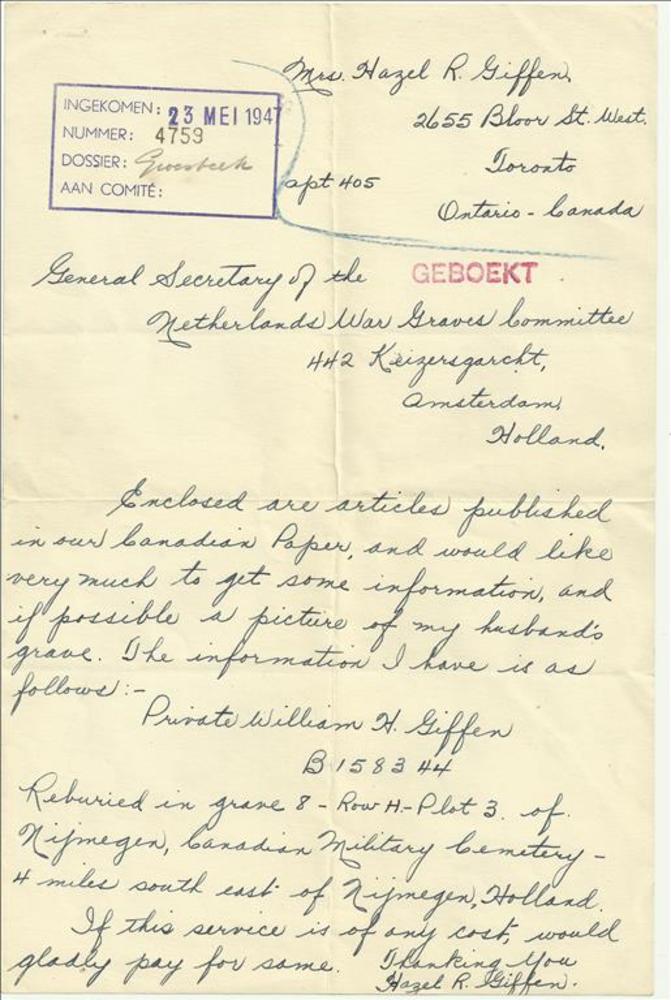 Mrs. Hazel R. Giffen,
2655 Bloor St. West.
apt 405
Toronto
Ontario - Canada
INGEKOMEN: 23 MEI 1947
NUMMER: 4759
DOSSIER: Groesbeek
AAN COMITÉ:
GEBOEKT
General Secretary of the
Netherlands War Graves Committee
442 Keizersgarcht,
Amsterdam,
Holland.
Enclosed are articles published
in our Canadian Paper, and would like
very much to get some information, and
if possible a picture of my husband's
grave. The information I have is as
follows:-
Private William H. Giffen
B 158344
Reburied in grave 8 - Row H - Plot 3. of
Nijmegen, Canadian Military Cemetery -
4 miles south east of Nijmegen, Holland.
If this service is of any cost, would
gladly pay for same. Thanking You
Hazel R. Giffen.